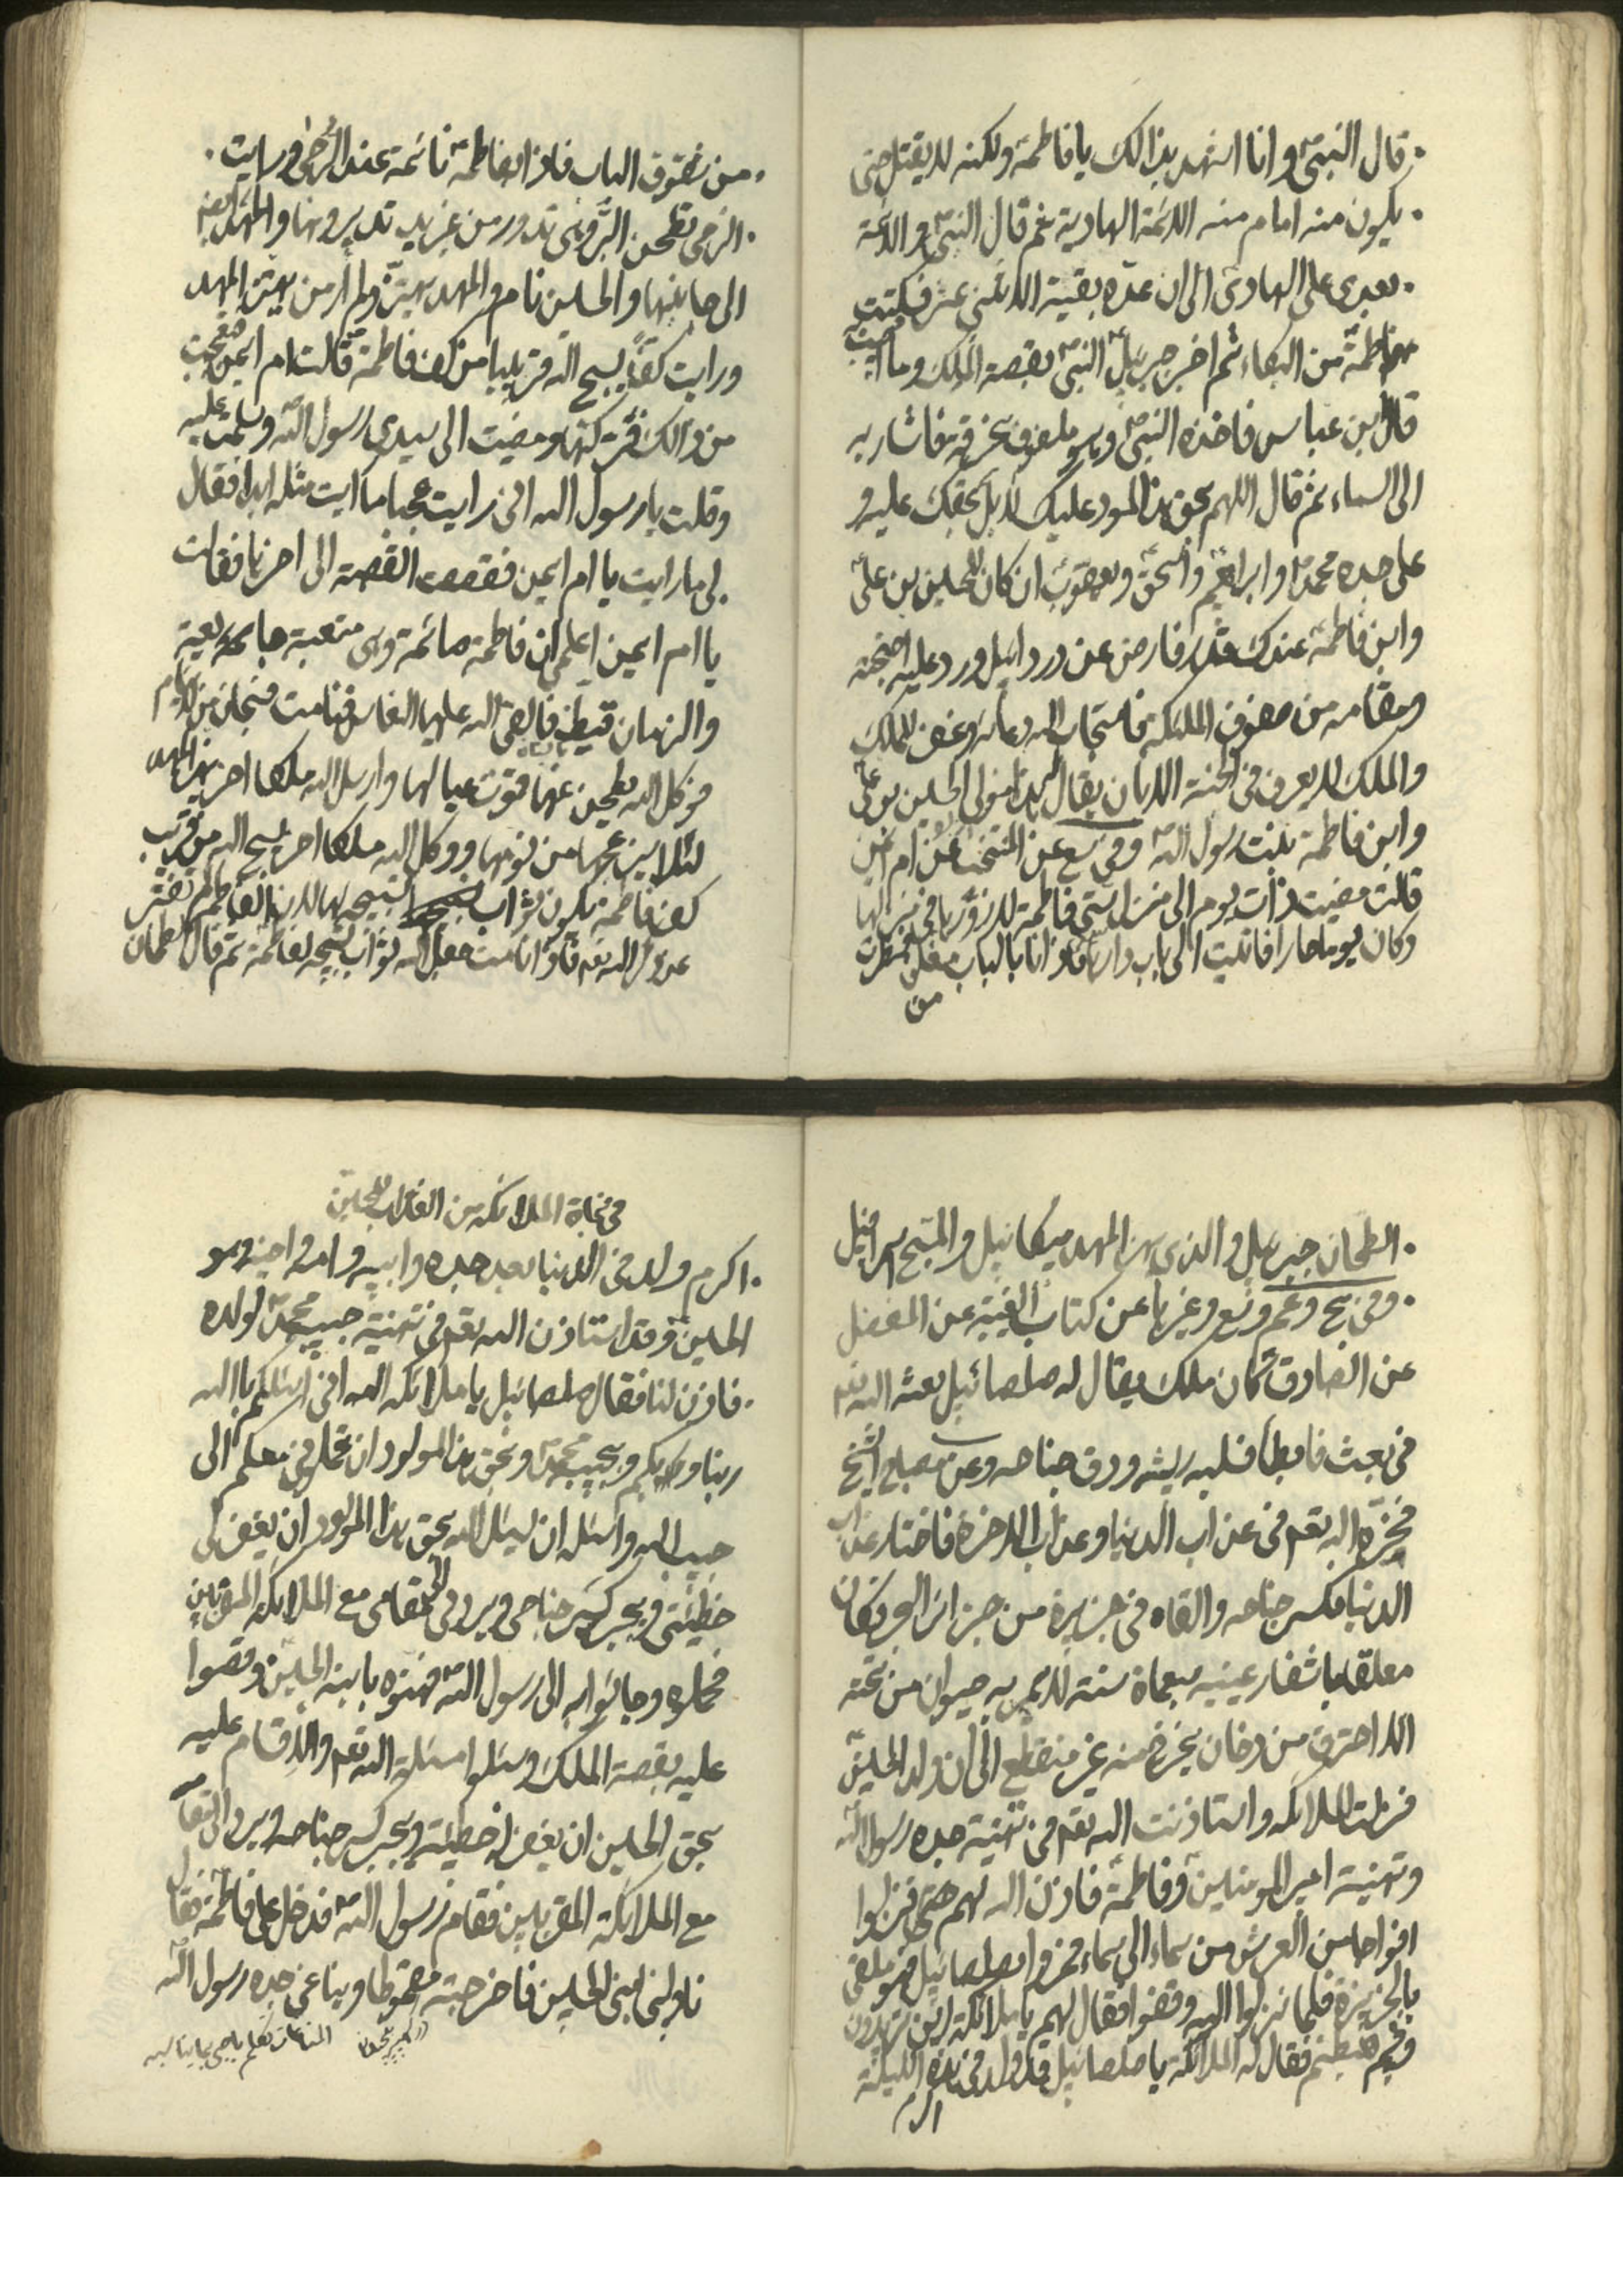 قال النبیؐ وانا اشهد بذالك یا فاطمة ولکنه لا یقتل حتی
یکون منه امام منه الائمة الهادیة ثم قال النبیؐ و الائمة
بعدی علی الهادی الی ان عده بقیة الاثنی عشر فسکتت
فاطمةؑ من البکاء ثم اخبر جبرئیلؑ النبیؐ بقصة الملك وما اصیب به
قال ابن عباس فاخذه النبیؐ وهو ملفوف بخرقة فاشار به
الی السماء ثم قال اللهم بحق هذا المولود علیك لا بل بحقك علیه و
علی جده محمدؐ وابراهیمؑ واسحقؑ ویعقوبؑ ان کان للحسین بن علیؑ
وابن فاطمةؑ عندك قدر فارض عن دردائیل ورد علیه اجنحته
ومقامه من صفوف الملئکة فاستجاب الله دعائه وغفر للملك
والملك لا یعرف فی الجنة الا بان یقال هذا مولی الحسین بن علیؑ
وابن فاطمة بنت رسول اللهؐ وفی سع عن المنتخب عن ام ایمن
قالت مضیت ذات یوم الی منزل ستی فاطمة لازورها فی منزلها
وکان یوما حارا فاتیت الی باب دارها فاذا انا بالباب مغلق فنظرت
من
من شقوق الباب فاذا بفاطمةؑ نائمة عند الرحی ورایت
الرحی تطحن البر وهی تدور من غیر ید تدیرها والمهد ایضا
الی جانبها والحسین نام والمهد یهتز ولم ار من یهز المهد
ورایت کفا یسبح الله قریبا من کف فاطمةؑ قالت ام ایمن فتعجبت
من ذالك فترکتها ومضیت الی سیدی رسول اللهؐ وسلمت علیه
وقلت یا رسول الله انی رایت عجبا ما رایت مثله ابدا فقال
لی ما رایت یا ام ایمن فقصصت القصة الی اخرها فقالت
یا ام ایمن اعلمی ان فاطمة صائمة وهی متعبة جایعة
والزمان قیظ فالقی الله علیها النعاس فنامت فسبحان من لا ینام
فوکل الله یطحن عنها قوت عیالها وارسل الله ملکا اخر یهز المهد
لئلا یزعجها من نومها ووکل الله ملکا اخر یسبح الله من قریب
کف فاطمة یکون ثواب تسبیحه لها لان فاطمة لم تفتر
عن ذکر الله فاذا نامت جعل الله ثواب تسبیحه لفاطمة ثم قال الطحان
الطحان جبرئیل والذی یهز المهد میکائیل والمسبح اسرافیل
وفی بح وعم وسع وغیرها عن کتاب الغیبة عن المفضل
عن الصادقؑ کان ملك یقال له صلصائیل بعثه الله تعم
فی بعث فابطأ فسلبه ریشه ودق جناحه وعن مصباح الشیخ
فخیره الله تعم فی عذاب الدنیا وعذاب الاخرة فاختار عذاب
الدنیا فکسر جناحه والقاه فی جزیرة من جزائر البحر فکان
معلقا باشفار عینیه سبعماة سنة لا یمر به حیوان من تحته
الا احترق من دخان یخرج منه غیر منقطع الی ان ولد الحسینؑ
فنزلت الملائکة واستاذنت الله تعم فی تهنیة جده رسول اللهؐ
وتهنیة امیر المومنینؑ وفاطمةؑ فاذن الله لهم حتی نزلوا
افواجا من العرش من سماء الی سماء فمروا بصلصائیل وهو ملقی
بالجزیرة فلما نزلوا الیه وقفوا فقال لهم یا ملائکة این تریدون
وفیم هبطتم فقال له الملائکة یا صلصائیل قد ولد فی هذه اللیلة
اکرم
فی نجاة الملائکة من العذاب للحسینؑ
اکرم ولد فی الدنیا بعد جده وابیه وامه واخیه وهو
الحسینؑ وقد استاذن الله تعم فی تهنیة حبیبه محمدؐ لولده
فاذن لنا فقال صلصائیل یا ملائکة الله انی اسئلکم بالله
ربنا وربکم وبحبیبه محمدؐ وبحق هذا المولود ان تحملونی معکم الی
حبیب الله واسئله ان یسئل الله بحق هذا المولود ان یغفر لی
خطیئتی ویجبر کسر جناحی ویردنی الی مقامی مع الملائکة المقربین
فحملوه وجائوا به الی رسول اللهؐ فهنوه بابنه الحسینؑ وقصوا
علیه بقصة الملك وسئلوا مسئلة الله تعم والاقسام علیه
بحق الحسین ان یغفر له خطیئته ویجبر کسر جناحه ویرده الی مقامه
مع الملائکة المقربین فقام رسول اللهؐ فدخل علی فاطمةؑ فقال
ناولنی ابنی الحسین فاخرجته مقموطا ویناغی جده رسول اللهؐ
المناغات تکلم